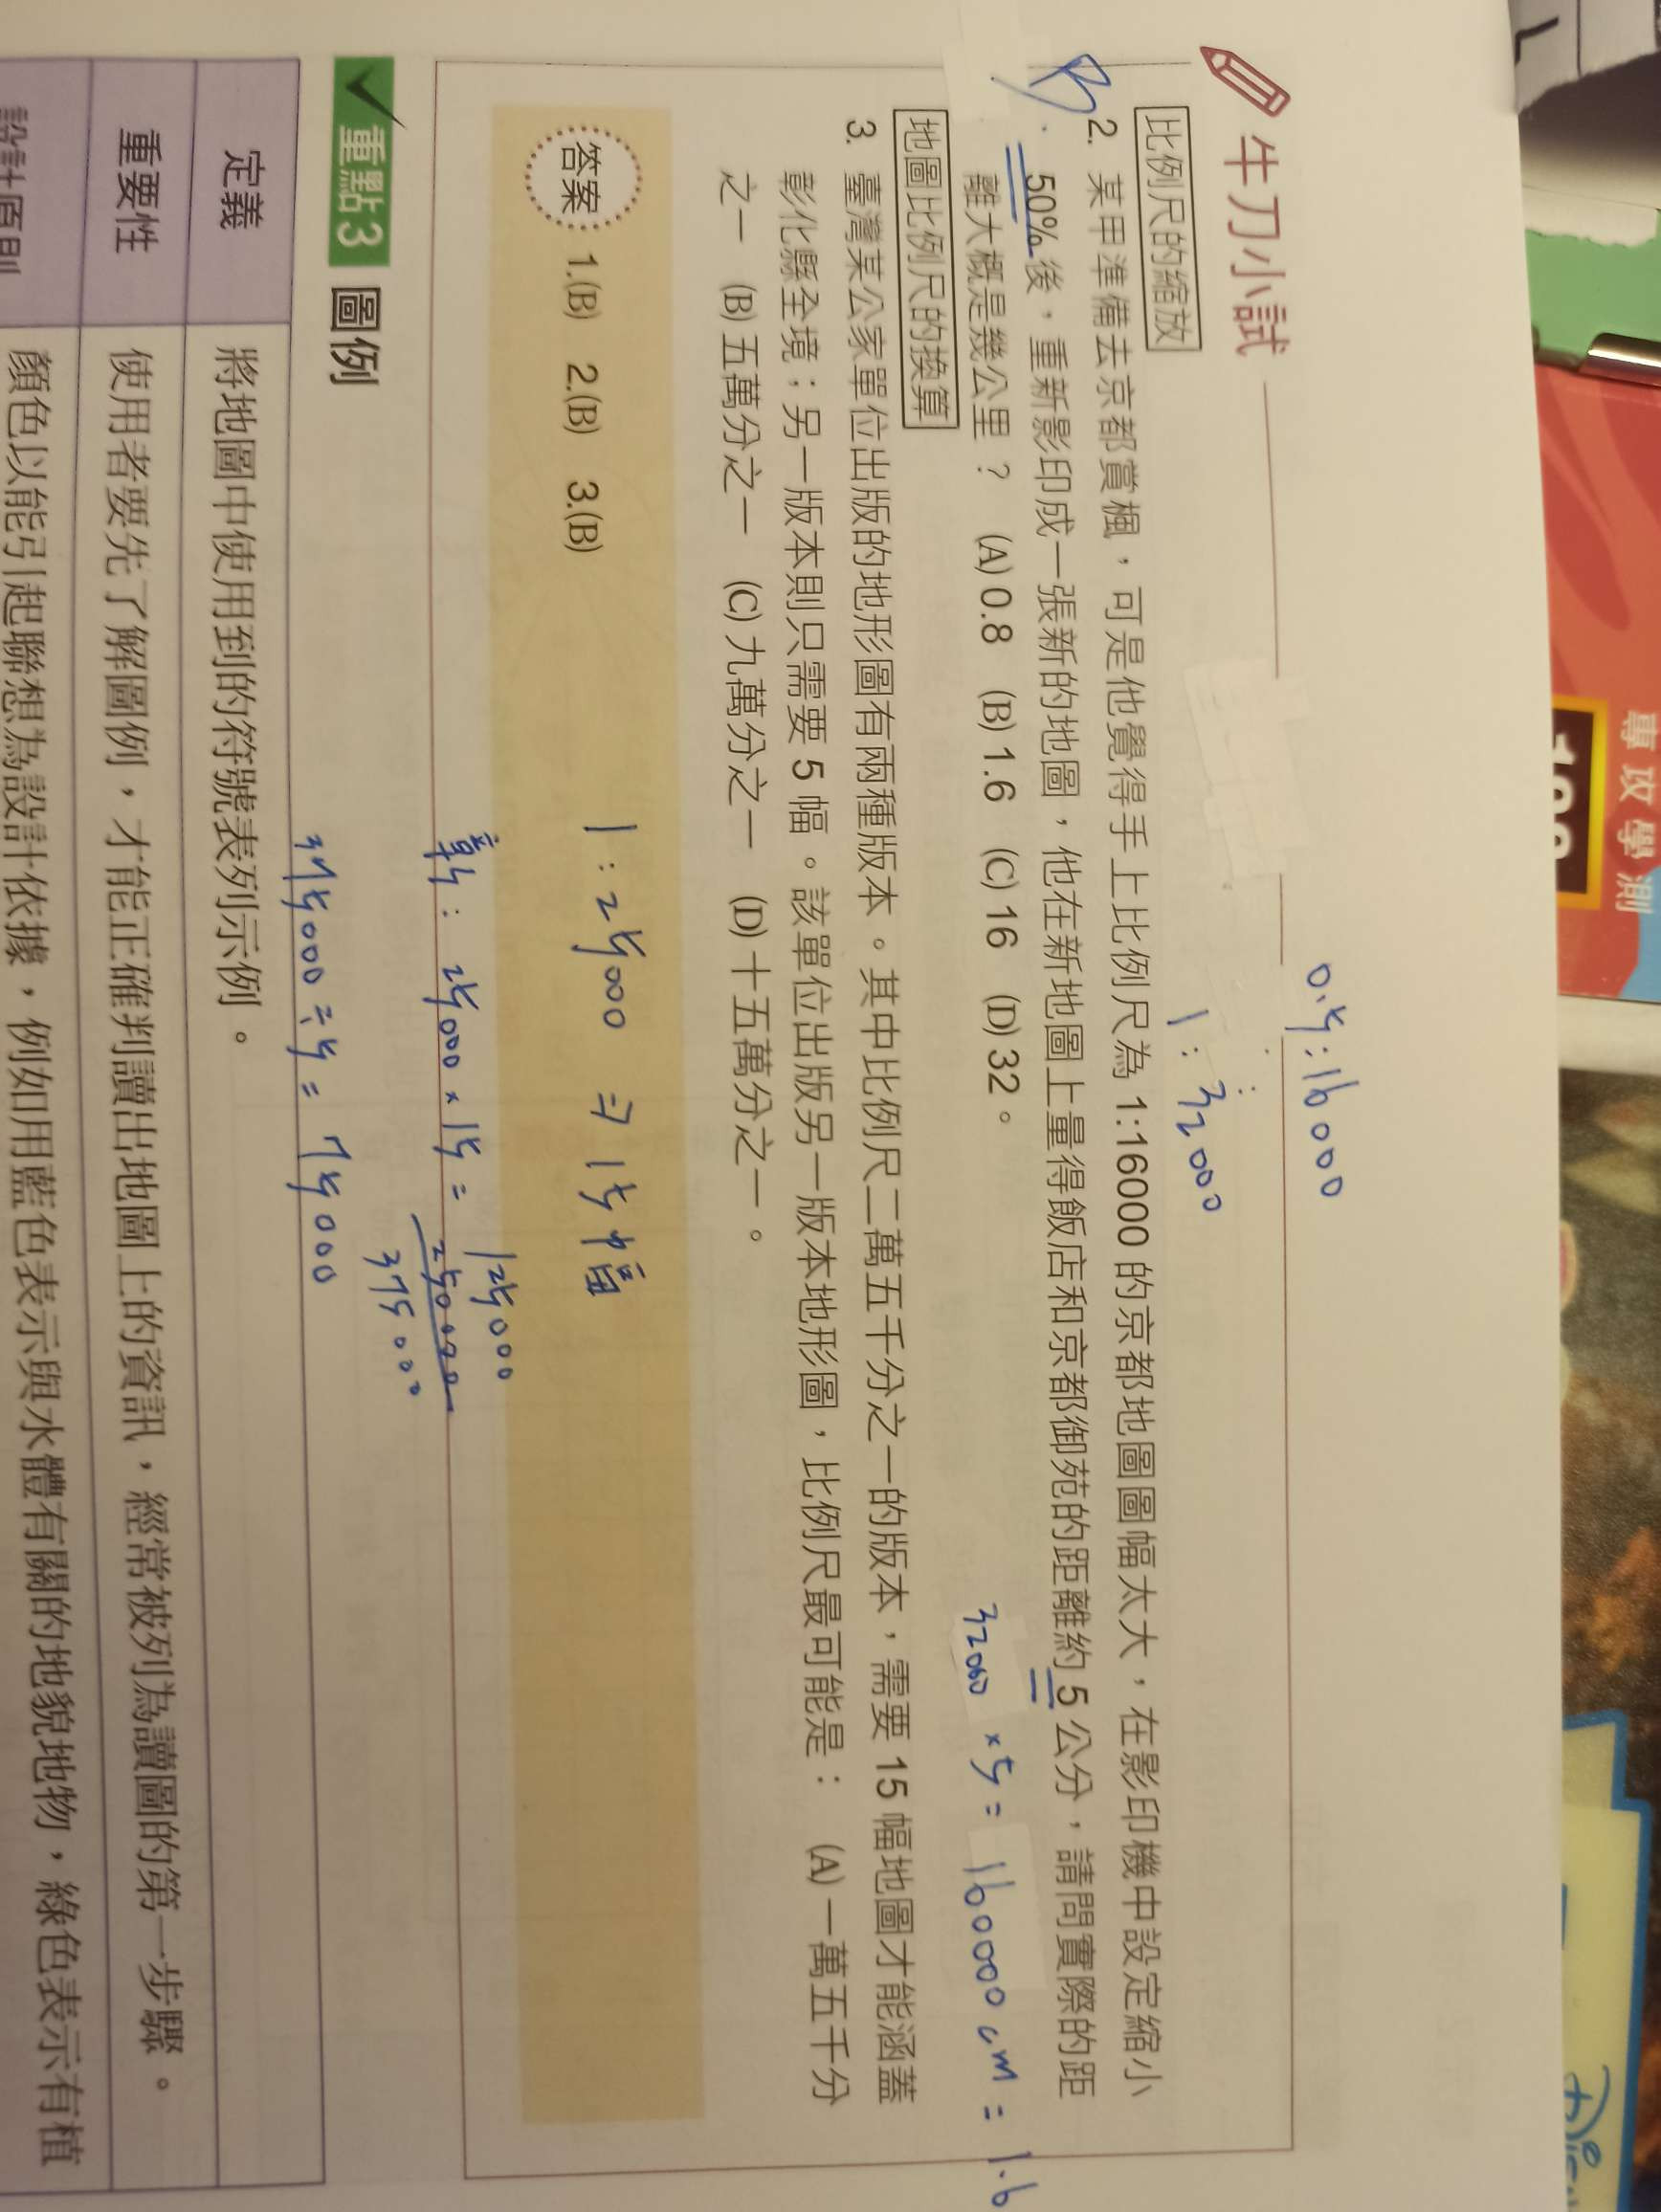 牛刀小試
0.5:16000
比例尺的縮放
1:32000
B
2. 某甲準備去京都賞楓，可是他覺得手上比例尺為 1:16000 的京都地圖圖幅太大，在影印機中設定縮小
50%後，重新影印成一張新的地圖，他在新地圖上量得飯店和京都御苑的距離約 5 公分，請問實際的距
離大概是幾公里？ (A) 0.8 (B) 1.6 (C) 16 (D) 32。
32000 × 5 = 160000 cm = 1.6
地圖比例尺的換算
3. 臺灣某公家單位出版的地形圖有兩種版本。其中比例尺二萬五千分之一的版本，需要 15 幅地圖才能涵蓋
彰化縣全境；另一版本則只需要 5 幅。該單位出版另一版本地形圖，比例尺最可能是： (A) 一萬五千分
之一 (B) 五萬分之一 (C) 九萬分之一 (D) 十五萬分之一。
答案 1.(B) 2.(B) 3.(B)
1:25000 ⇒ 15幅
彰: 25000 × 15 =
125000
25000
375000
375000 ÷ 5 = 75000
重點 3 圖例
定義 將地圖中使用到的符號表列示例。
重要性 使用者要先了解圖例，才能正確判讀出地圖上的資訊，經常被列為讀圖的第一步驟。
設計原則 顏色以能引起聯想為設計依據，例如用藍色表示與水體有關的地貌地物，綠色表示有植
專攻學測